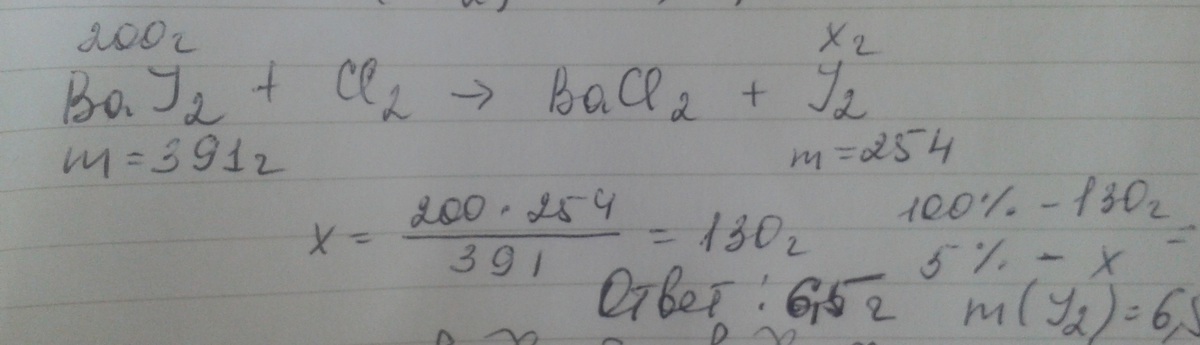 200г xг
BaJ2 + Cl2 → BaCl2 + J2
m = 391г m = 254
x = 200 · 254 / 391 = 130г 100% - 130г =
5% - x
Ответ : 6,5г m(J2) = 6,5